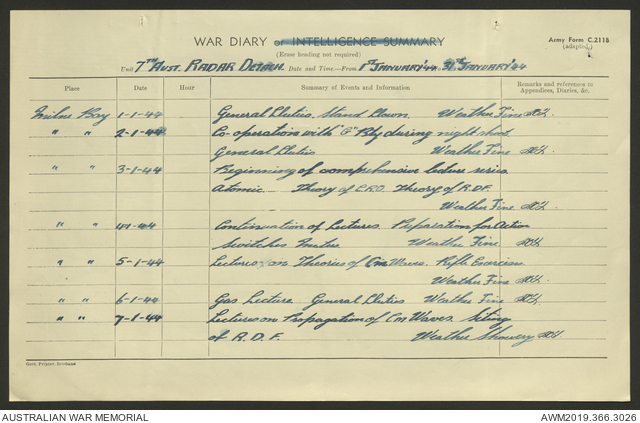 WAR DIARY or INTELLIGENCE SUMMARY
Army Form C.2118
(adapted)
(Erase heading not required)
Unit 7TH AUST. RADAR DETACH. Date and Time.—From 1ST JANUARY '44 31ST JANUARY '44
Place Date Hour Summary of Events and Information Remarks and references to Appendices, Diaries, &c.
Milne Bay 1-1-44 General Duties Stand Down Weather Fine
" " 2-1-44 Co-operation with "G" Bty during night shoot
General Duties Weather Fine
" " 3-1-44 Beginning of comprehensive lecture series
Atomic Theory of C.R.O. Theory of R.D.F.
Weather Fine
" " 4-1-44 Continuation of Lectures. Preparation for Action
Switches Weather Fine
" " 5-1-44 Lectures on Theories of Cm Waves. Rifle Exercises
Weather Fine
" " 6-1-44 Gas Lecture General Duties Weather Fine
" " 7-1-44 Lectures on Propagation of Cm Waves. Siting
of R.D.F. Weather Showery
Govt. Printer, Brisbane
AUSTRALIAN WAR MEMORIAL AWM2019.366.3026